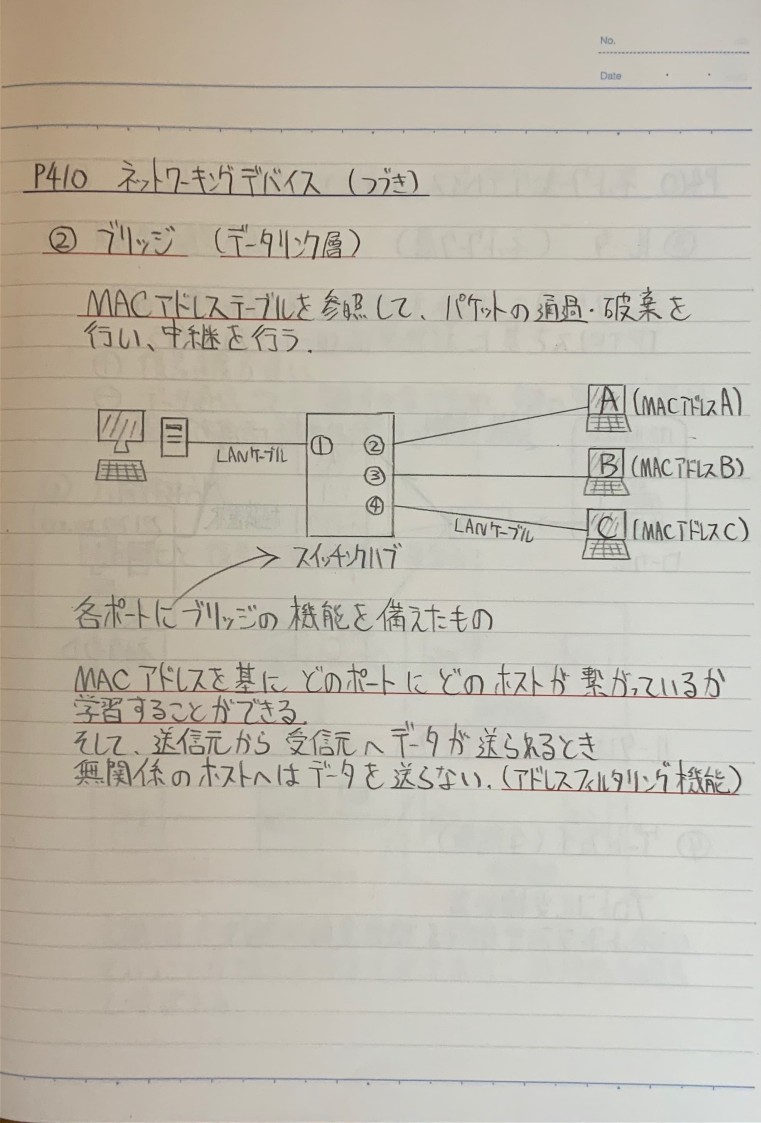 No.
Date
P410 ネットワーキングデバイス (つづき)
② ブリッジ (データリンク層)
MACアドレステーブルを参照して、パケットの通過・破棄を
行い、中継を行う.
A (MACアドレスA)
LANケーブル
① ②
B (MACアドレスB)
③
④
LANケーブル
C (MACアドレスC)
スイッチングハブ
各ポートにブリッジの機能を備えたもの
MACアドレスを基に どのポートに どの ホストが 繋がっているか
学習することができる.
そして、送信元から 受信元へデータが送られるとき
無関係のホストへはデータを送らない. (アドレスフィルタリング機能)